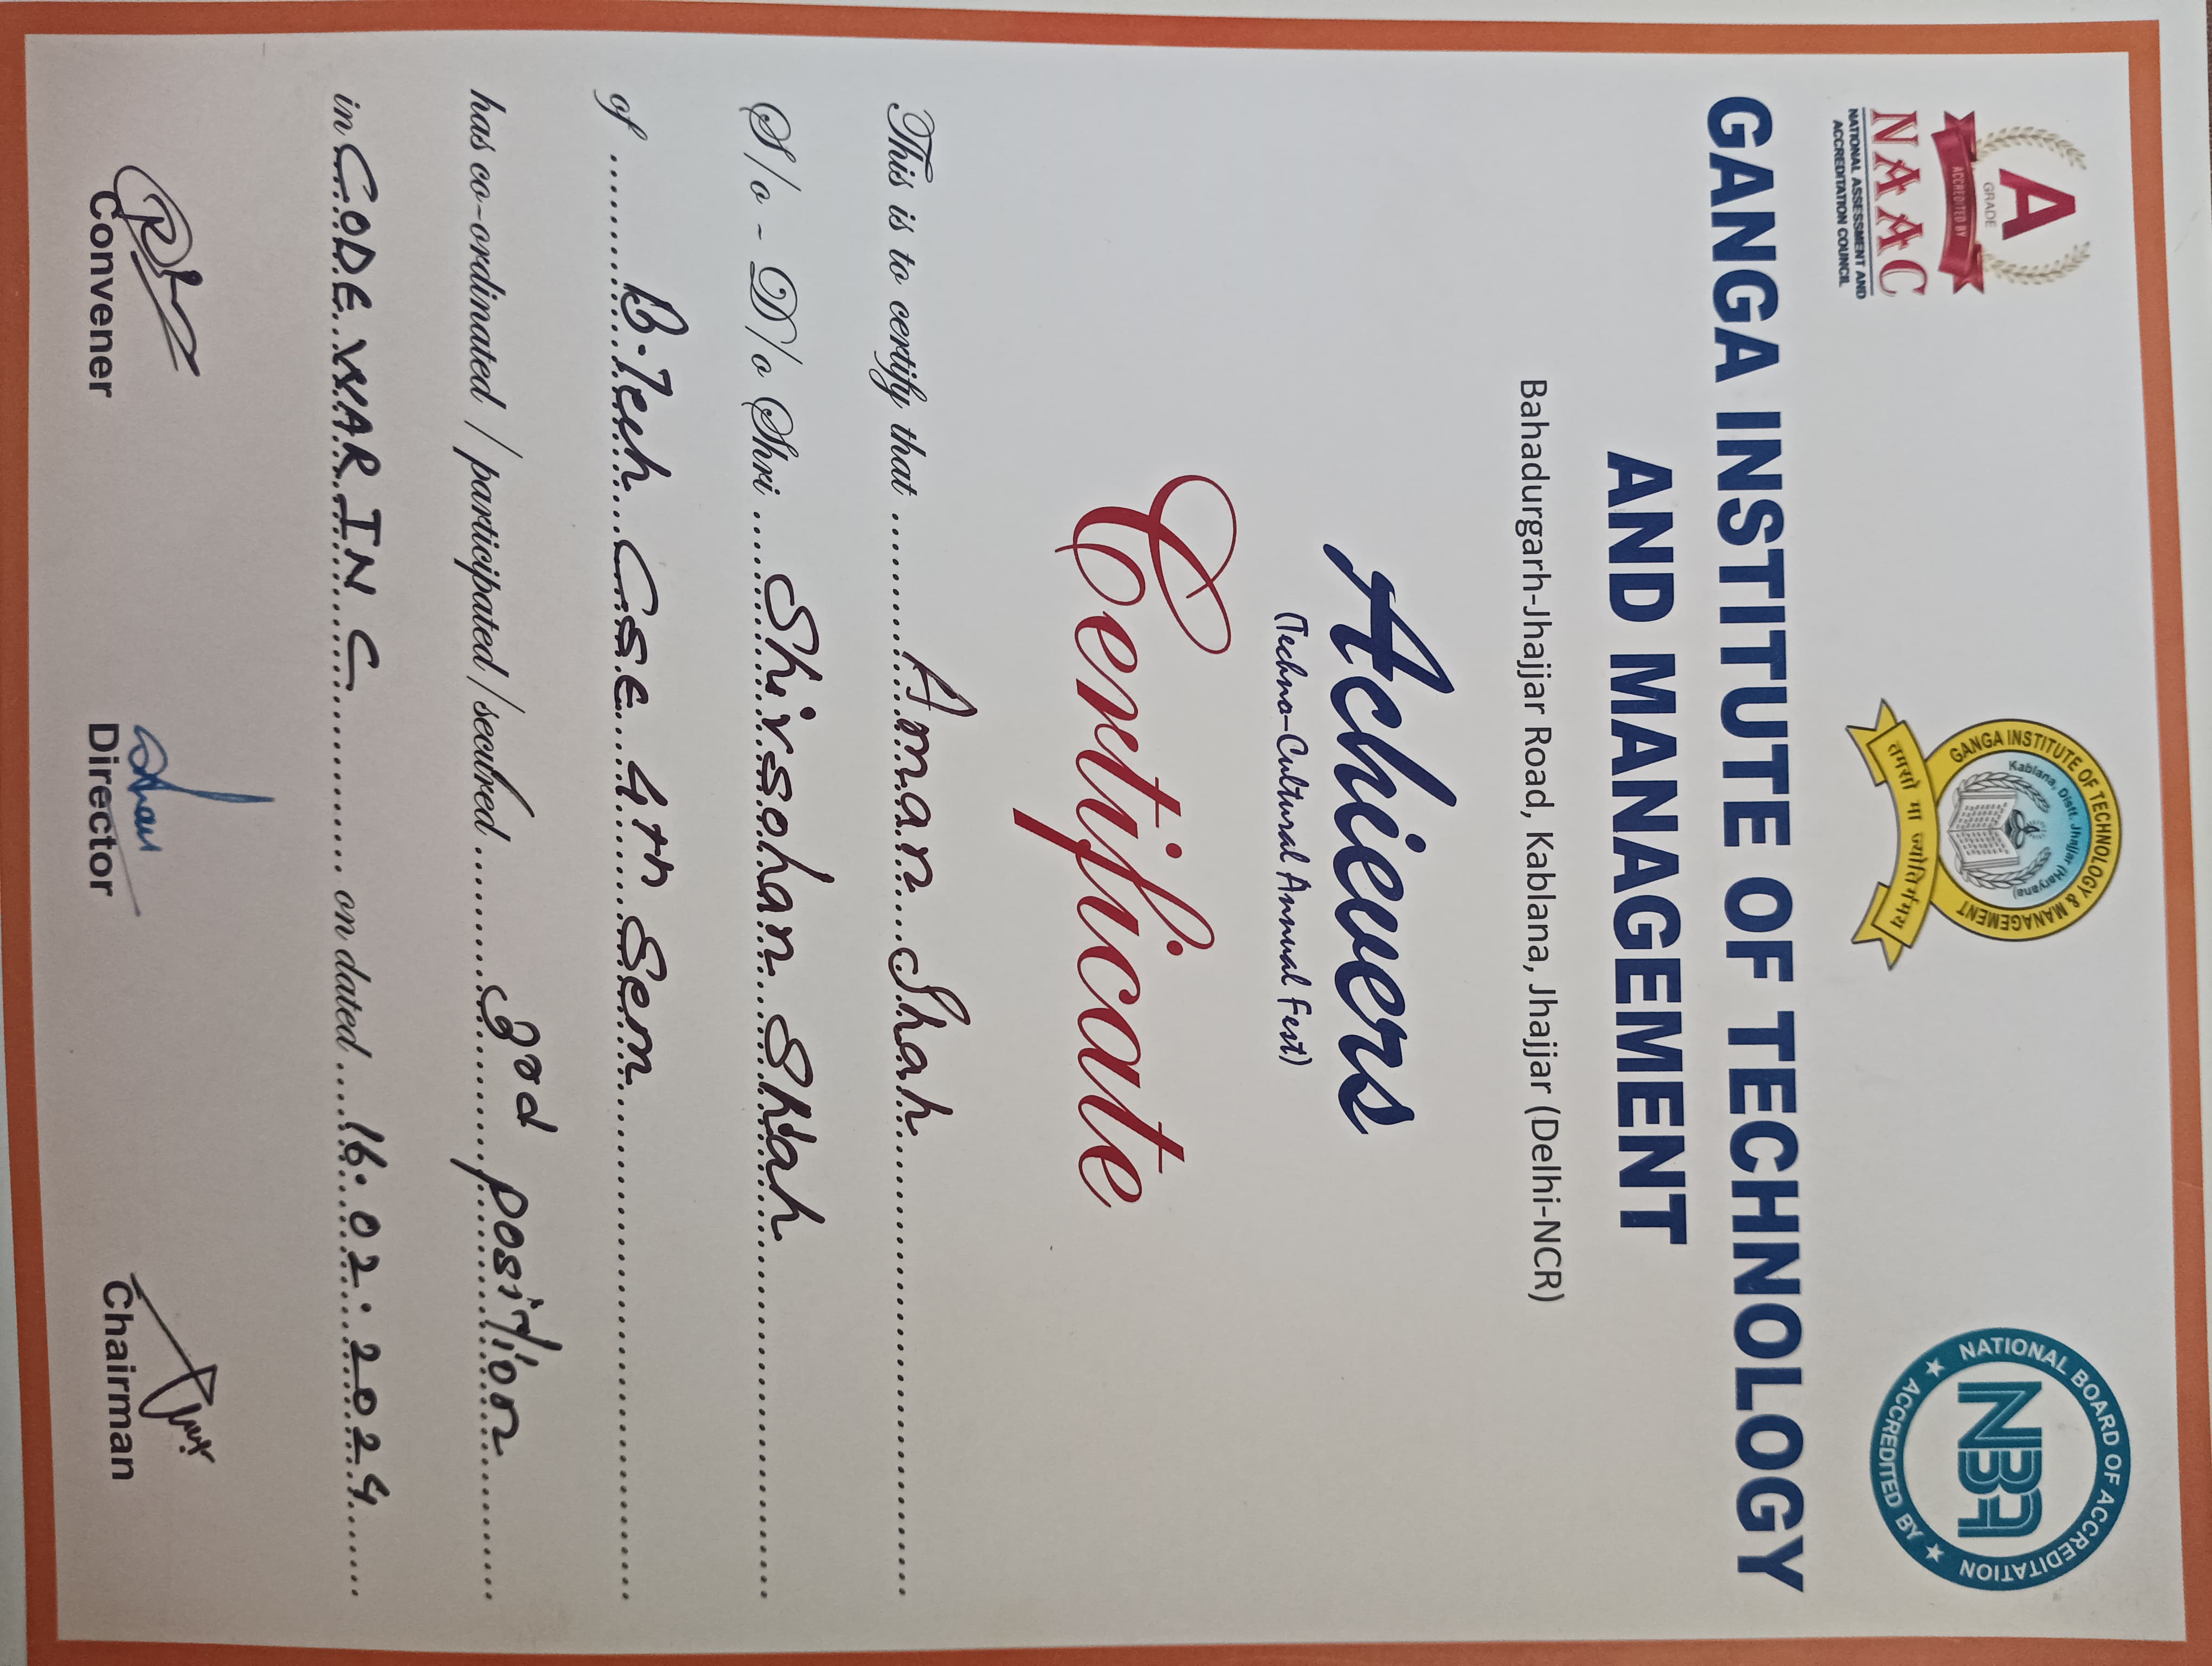 A
GRADE
ACCREDITED BY
NAAC
NATIONAL ASSESSMENT AND
ACCREDITATION COUNCIL
GANGA INSTITUTE OF TECHNOLOGY & MANAGEMENT
Kablana, Distt. Jhajjar (Haryana)
तमसो मा ज्योतिर्गमय
NATIONAL BOARD OF ACCREDITATION
NBA
ACCREDITED BY
GANGA INSTITUTE OF TECHNOLOGY
AND MANAGEMENT
Bahadurgarh-Jhajjar Road, Kablana, Jhajjar (Delhi-NCR)
Achievers
(Techno-Cultural Annual Fest)
Certificate
This is to certify that Aman Shah
S/o - D/o Shri Shivsohan Shah
of B.Tech CSE 4th Sem
has co-ordinated / participated / secured 3rd position
in CODE WAR IN C on dated 16.02.2024
Convener Director Chairman